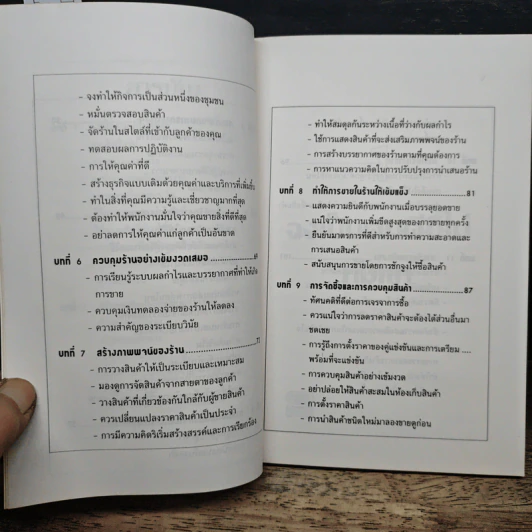 - จงทำให้กิจการเป็นส่วนหนึ่งของชุมชน
- หมั่นตรวจสอบสินค้า
- จัดร้านในสไตล์ที่เข้ากับลูกค้าของคุณ
- ทดสอบผลการปฏิบัติงาน
- การให้คุณค่าที่ดี
- สร้างธุรกิจแบบเดิมด้วยคุณค่าและบริการที่เพิ่มขึ้น
- ทำในสิ่งที่คุณมีความรู้และเชี่ยวชาญมากที่สุด
- ต้องทำให้พนักงานมั่นใจว่าคุณขายสิ่งที่ดีที่สุด
- อย่าลดการให้คุณค่าแก่ลูกค้าเป็นอันขาด
บทที่ 6 ควบคุมร้านอย่างเข้มงวดเสมอ
- การเรียนรู้ระบบผลกำไรและบรรยากาศที่ทำให้เกิด
การขาย
- ควบคุมเงินทดลองจ่ายของร้านให้ลดลง
- ความสำคัญของระเบียบวินัย
บทที่ 7 สร้างภาพพจน์ของร้าน
- การวางสินค้าให้เป็นระเบียบและเหมาะสม
- มองดูการจัดสินค้าจากสายตาของลูกค้า
- วางสินค้าที่เกี่ยวข้องกันใกล้กับผู้ขายสินค้า
- ควรเปลี่ยนแปลงราคาสินค้าเป็นประจำ
- การมีความคิดริเริ่มสร้างสรรค์และการเรียกร้อง
- ทำให้สมดุลกันระหว่างเนื้อที่ว่างกับผลกำไร
- ใช้การแสดงสินค้าที่จะส่งเสริมภาพพจน์ของร้าน
- การสร้างบรรยากาศของร้านตามที่คุณต้องการ
- การหาแนวความคิดในการปรับปรุงการนำเสนอร้าน
บทที่ 8 ทำให้การขายในร้านให้เข้มแข็ง ........ 81
- แสดงความยินดีกับพนักงานเมื่อบรรลุยอดขาย
- แน่ใจว่าพนักงานเพิ่มขีดสูงสุดของการขายทุกครั้ง
- ยืนยันมาตรการที่ดีสำหรับการทำความสะอาดและ
การเสนอสินค้า
- สนับสนุนการขายโดยการชักจูงให้ซื้อสินค้า
บทที่ 9 การจัดซื้อและการควบคุมสินค้า ........ 87
- ทัศนคติที่ดีต่อการเจรจาการซื้อ
- ควรแน่ใจว่าการลดราคาสินค้าจะต้องได้ส่วนอื่นมา
ชดเชย
- การรู้ถึงการตั้งราคาของคู่แข่งขันและการเตรียม .....
พร้อมที่จะแข่งขัน
- การควบคุมสินค้าอย่างเข้มงวด
- อย่าปล่อยให้สินค้าสะสมในห้องเก็บสินค้า
- การตั้งราคาสินค้า
- การนำสินค้าชนิดใหม่มาลองขายดูก่อน